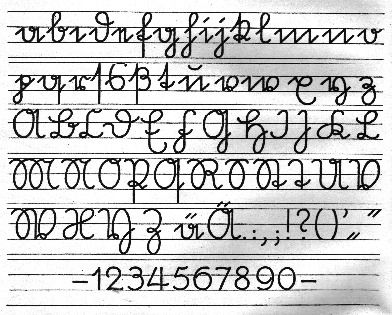 a b c d e f g h i j k l m n o
p q r ſ s ß t u v w x y z
A B C D E F G H I J K L
M N O P Q R S T U V
W X Y Z ü Ä . : , ; ! ? ( ) ' „ “
–1234567890–